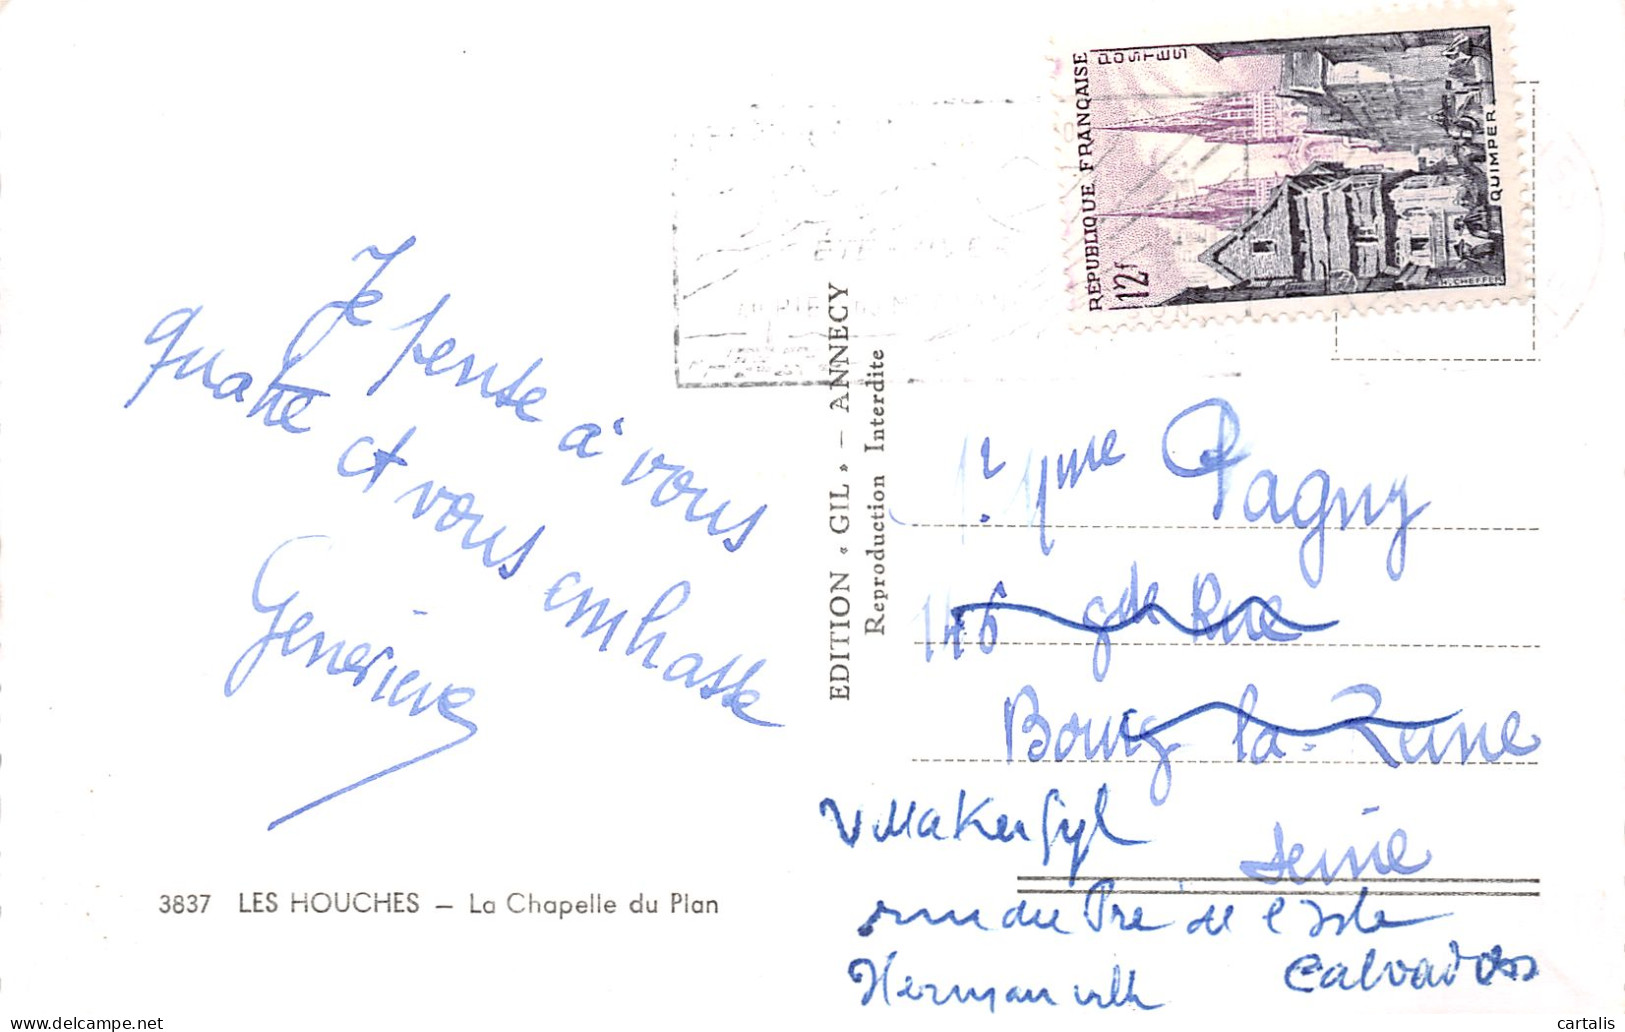 Je pense à vous
quatre et vous embrasse
Geneviève
3837 LES HOUCHES – La Chapelle du Plan
EDITION « GIL » – ANNECY
Reproduction Interdite
REPUBLIQUE FRANÇAISE
POSTES
12f
QUIMPER
H. CHEFFER
Mme Pagny
146 gde Rue
Bourg-la-Reine
Seine
Villa Ker Gyl
rue du Pré de l'Isle
Hermanville Calvados
delcampe.net
cartalis